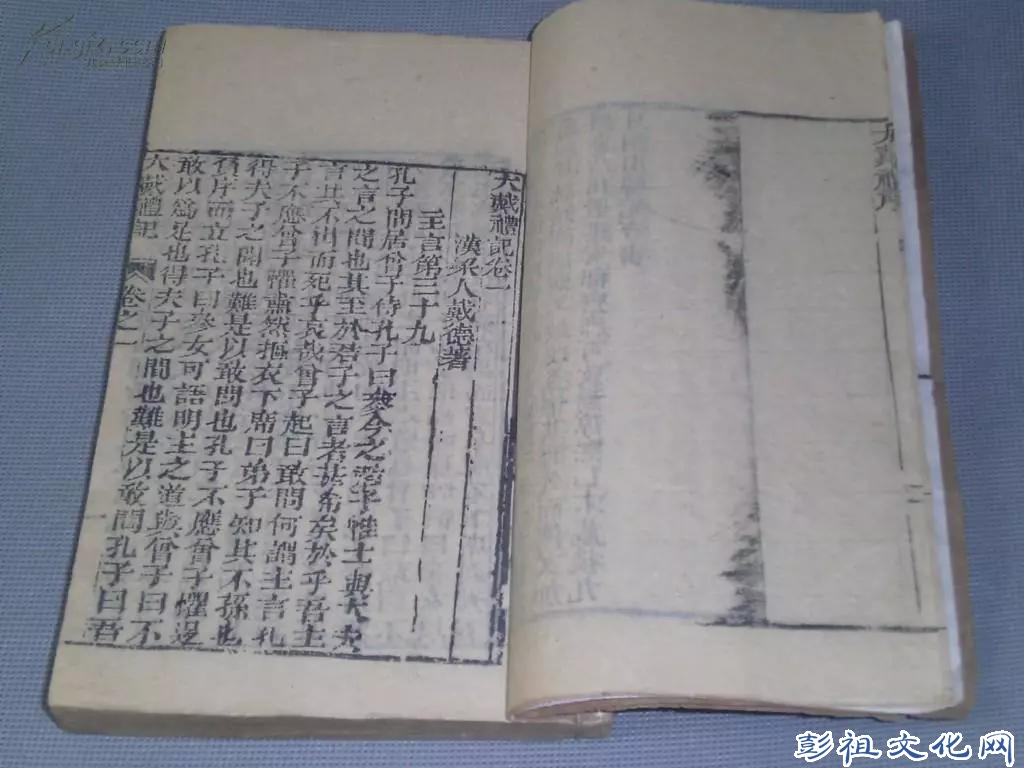 大戴禮記卷一
漢梁人戴德著
王言第三十九
孔子閒居曾子侍孔子曰參今之君子惟士與大夫
之言之間也其至於君子之言者甚希矣於乎吾主
言其不出而死乎哀哉曾子起曰敢問何謂主言孔
子不應曾子懼肅然摳衣下席曰弟子知其不孫也
得夫子之閒也難是以敢問也孔子不應曾子懼退
負序而立孔子曰參女可語明主之道與曾子曰不
敢以爲足也得夫子之間也難是以敢問孔子曰吾
大戴禮記 卷之一 一
彭祖文化网